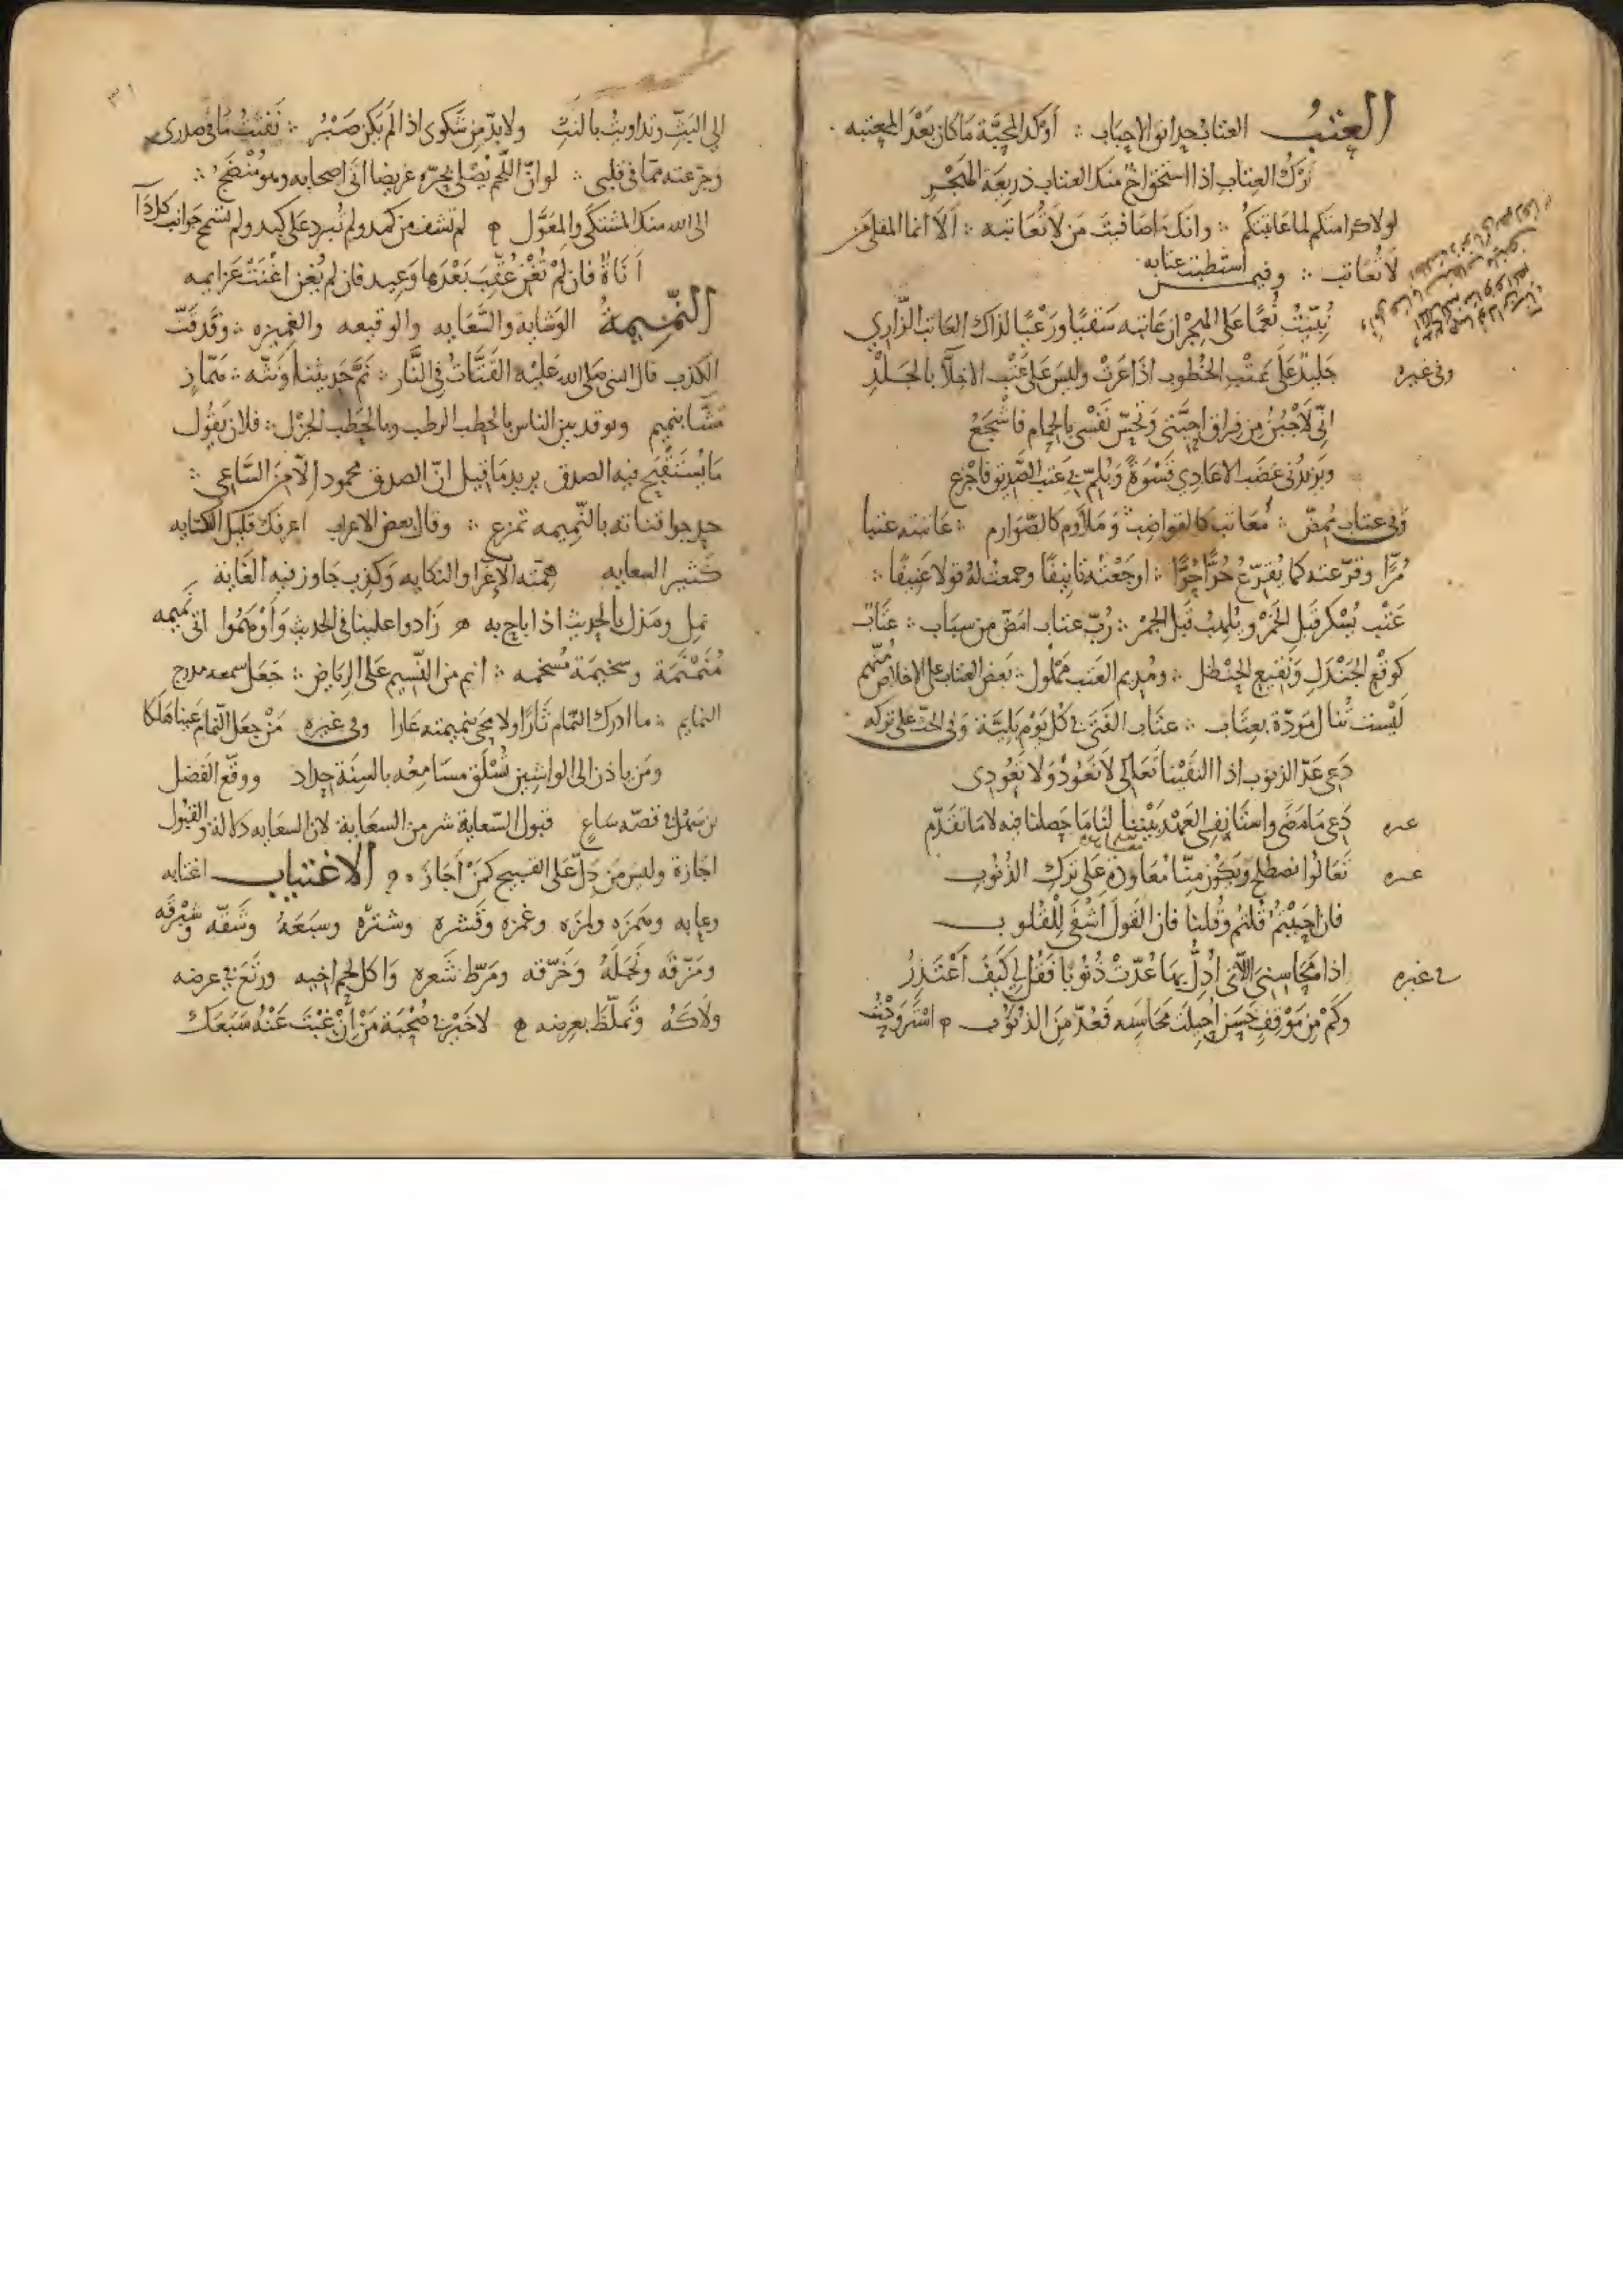 العتب العتاب حدائق الاحباب ∴ أوكد المحبّة ما كان بعد المعتبه
ترك العتاب اذا استحق اخ منك العتاب ذريعة الهجر
لولا كرامتكم لما عاتبتكم ∴ وانك ما صافيت من لا تعاتبه ∴ ألا انما المقلي من
لا تعاتب ∴ وفيمن استطبت عتابه
نُبّئتُ نُعمًا على الهجران عاتبه سقيًا ورعيًا لذاك العاتب الزّاري
وفي غيره جليدٌ على عتب الخطوب اذا عرت وليس على عتب الاخلّاء بالجلد
انّي لأجبُنُ من فراق احبّتي وتحسّ نفسي بالحمام فاشجع
ويزيدني غضب الاعادي قسوةً ويلمّ بي عتب الصديق فاجزع
وفي عتاب ممضّ ∴ معاتب كالقواضب وملاوم كالصّوارم ∴ عاتبته عتبا
مُرًّا وقرّعته كما يقرّع حُرٌّ حُرًّا ∴ اوجعته تانيفًا وجمعت له قولا عنيفًا ∴
عتب يُسكر قبل الخمر ويلهب قبل الجمر ∴ رُبّ عتاب امضّ من سباب ∴ عتاب
كوقع الجندل ونقيع الحنظل ∴ ومُديم العتب مملول ∴ بعض العتاب على الاخلاص متّهم
ليست تُنال مودّة بعتاب ∴ عتاب الفتى في كل يوم بليّة وفي الحثّ على تركه
دعي عدّ الذنوب اذا التقينا تعالي لا نعود ولا تعودي
غيره دعي ما مضى واستانفي العهد بيننا لنا ما حصلنا فيه لا ما تقدّم
غيره تعالوا نصطلح ويكون منّا معاودة على ترك الذنوب
فان احببتم قلتم وقلنا فان القول اشفى للقلوب
في غيره اذا محاسني اللاتي أدلّ بها عُدّت ذنوبا فقل لي كيف اعتذر
وكم من موقف حسن احيلت محاسنه فعدّ من الذنوب استروحتُ
٣١
الى البثّ وتداويت بالنثّ ولا بدّ من شكوى اذا لم يكن صبر ∴ نفثت ما في صدري
وجرّعته ممّا في قلبي ∴ لو انّ اللّحم يصلى بحرّه غريضا اتى اصحابه وهو منضج ∴
الى الله منك المشتكى والمعوّل لم تشف من كمد ولم تبرد على كبد ولم تسمح جوانب كل دآ
أناةٌ فان لم تُغن عُقِّب بعدها وعيد فان لم يُغن اغنت عزايمه
النّميمة الوشاية والسّعايه والوقيعه والغميزه ∴ وقد قتّ
الكذب قال النبي صلى الله عليه القتّات في النّار ∴ نمّ حديثنا ونثّه ∴ همّاز
مشّا بنميم ويوقد بين الناس بالحطب الرطب وبالحطب الجزل ∴ فلان يقول
ما يُستقبح فيه الصدق يريد ما قيل انّ الصدق محمود الا من السّاعي ∴
حدجوا قناته بالنّميمه تمزع ∴ وقال بعض الاعراب اعرفك قليل الكتابه
كثير السعايه همّته الإغرا والنكايه وكذب جاوز فيه الغاية
نمل ومذل بالحديث اذا باح به زادوا علينا في الحديث وأوهموا اتى بنميمه
مُنمنمة وسخيمة مُسخمه ∴ انم من النّسيم على الرياض ∴ جعل سمعه مدرج
النمايم ∴ ما ادرك النّمام ثارًا ولا محى بنميمته عارا وفي غيره من جعل النّمام عينا هلكا
ومن ياذن الى الواشين تُسلق مسامعه بالسنة حداد ووقّع الفضل
بن سهل في قصّه ساعٍ قبول السّعاية شر من السعاية لان السعايه دلالة والقبول
اجازة وليس من دلّ على القبيح كمن أجاز الاغتياب اغتابه
وعابه وهمزه ولمزه وغمزه وقشره وشتره وسبعه وشقّه وشرّقه
ومزّقه ونجله وخرّقه ومرّط شعره واكل لحم اخيه ورتع في عرضه
ولاكه وتملّظ بعرضه لا خير في صحبة من أن غبت عنه سبعك